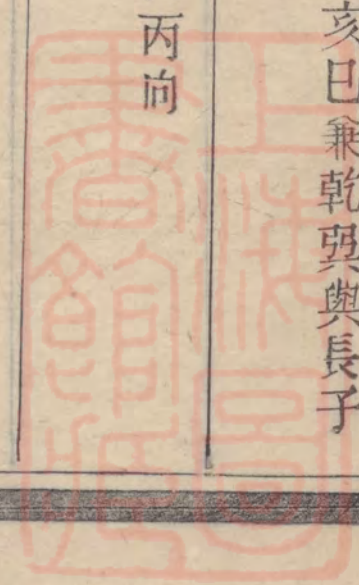 亥巳兼乾巽與長子
丙向
上海圖書館藏